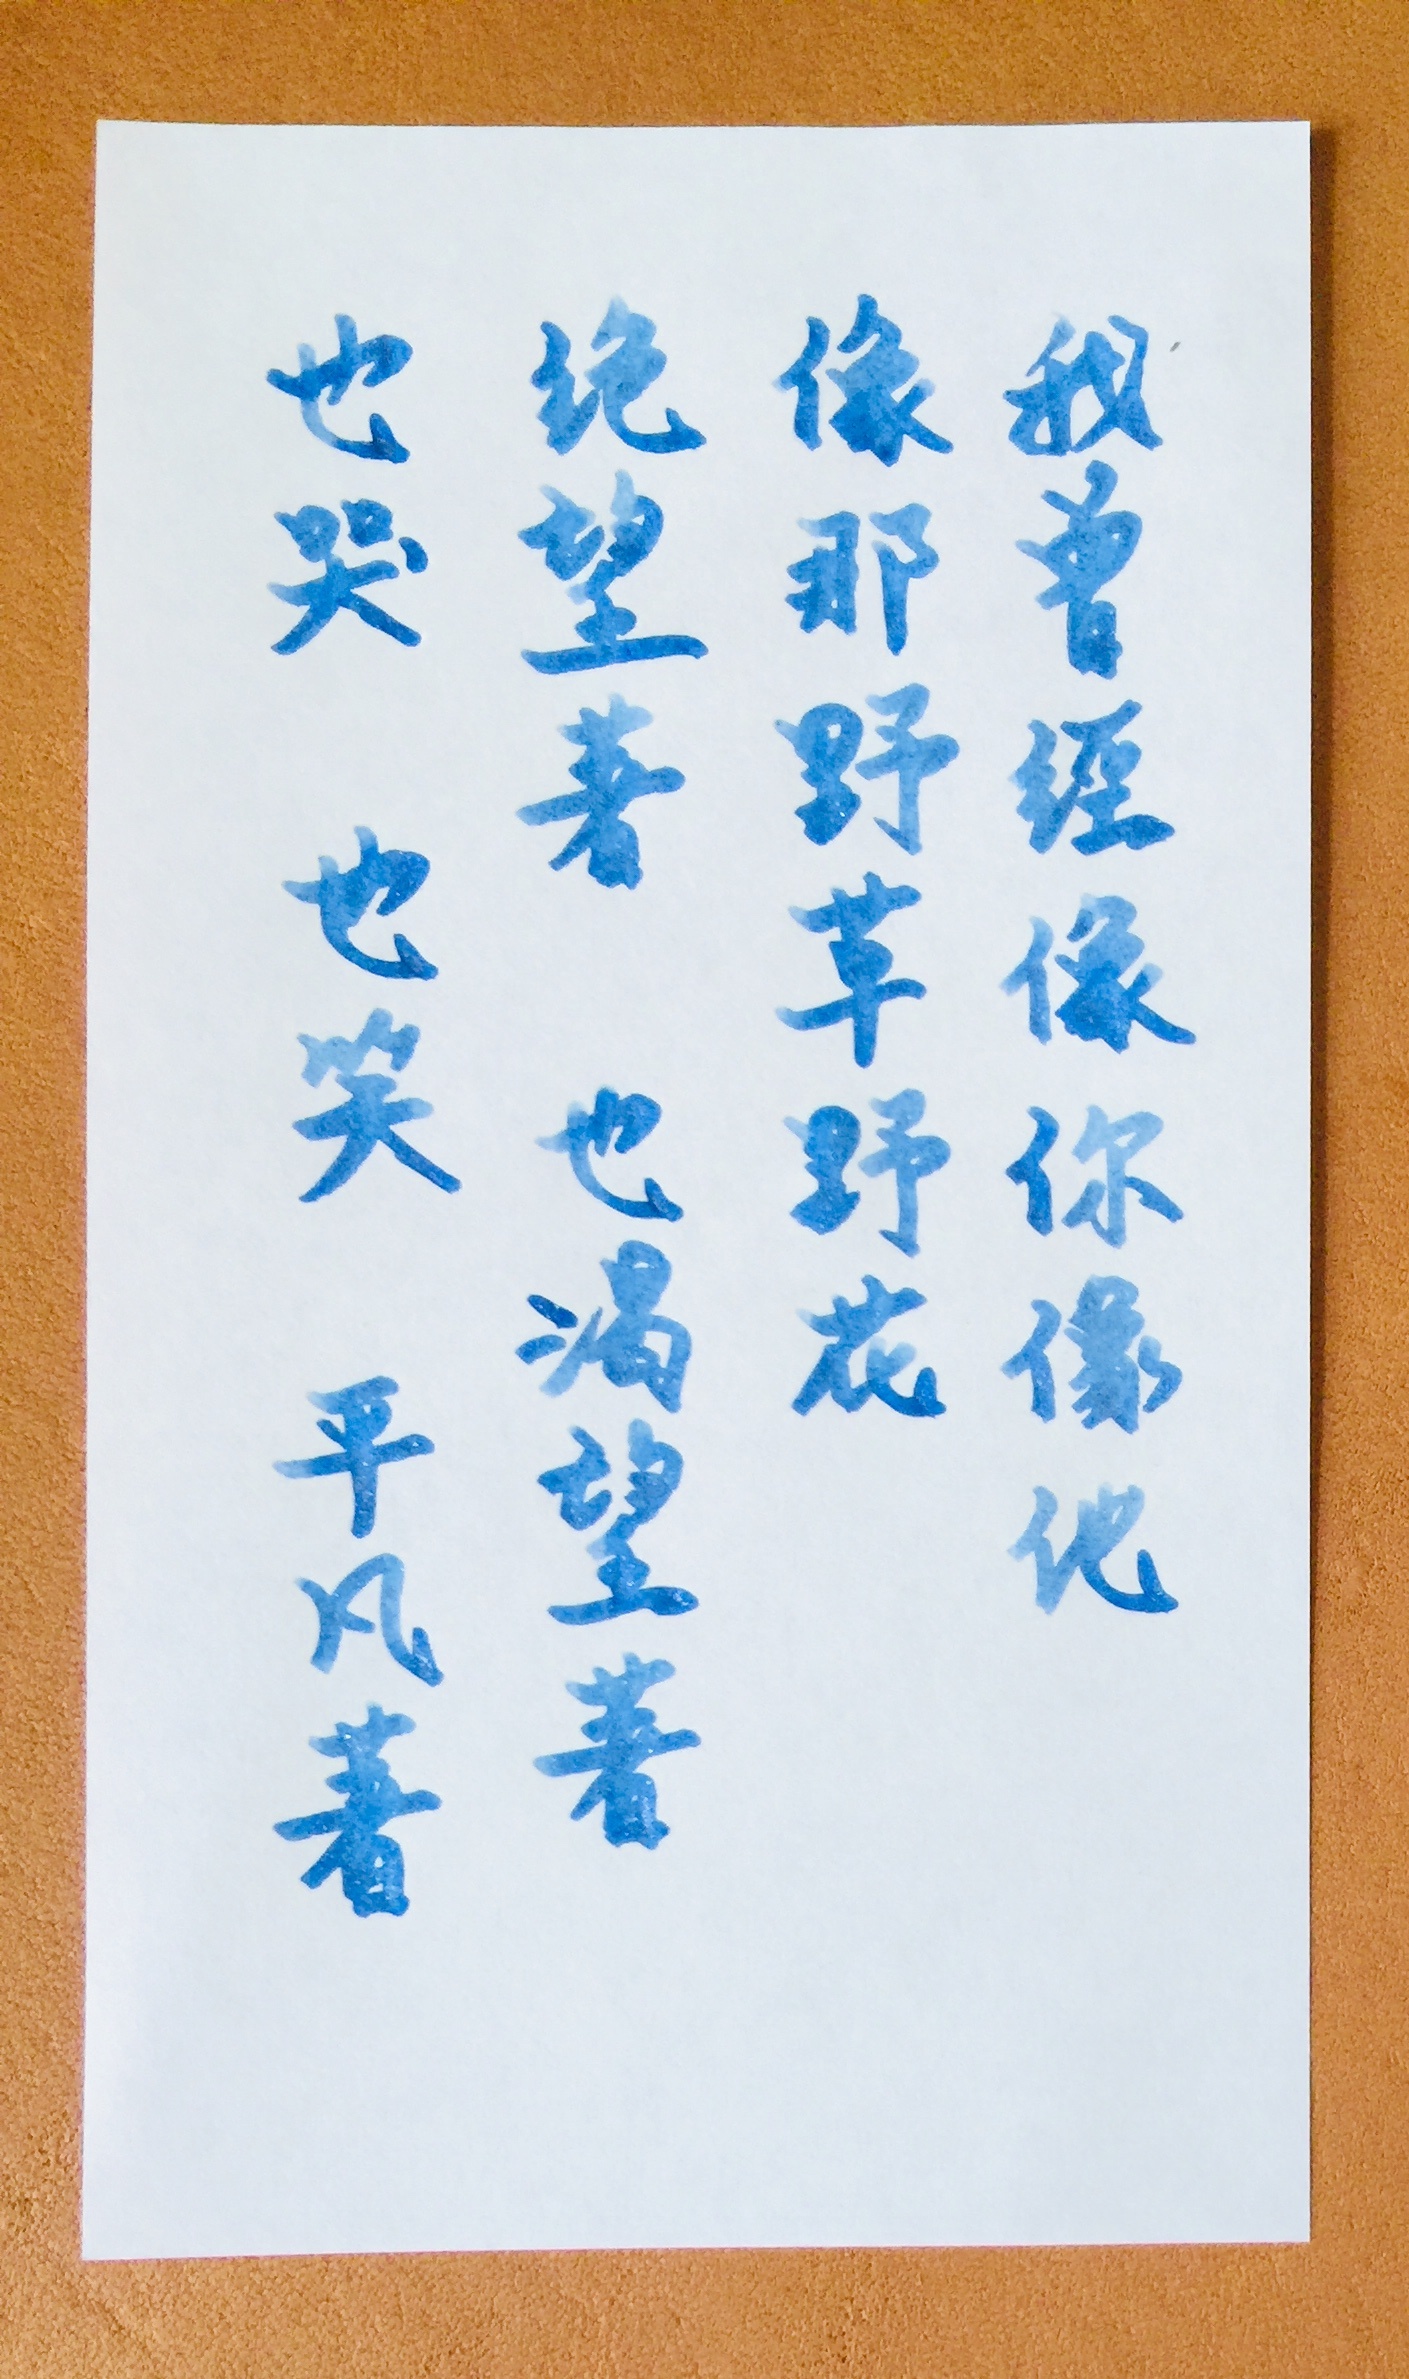 我曾經像你像他
像那野草野花
绝望著 也渴望著
也哭 也笑 平凡著